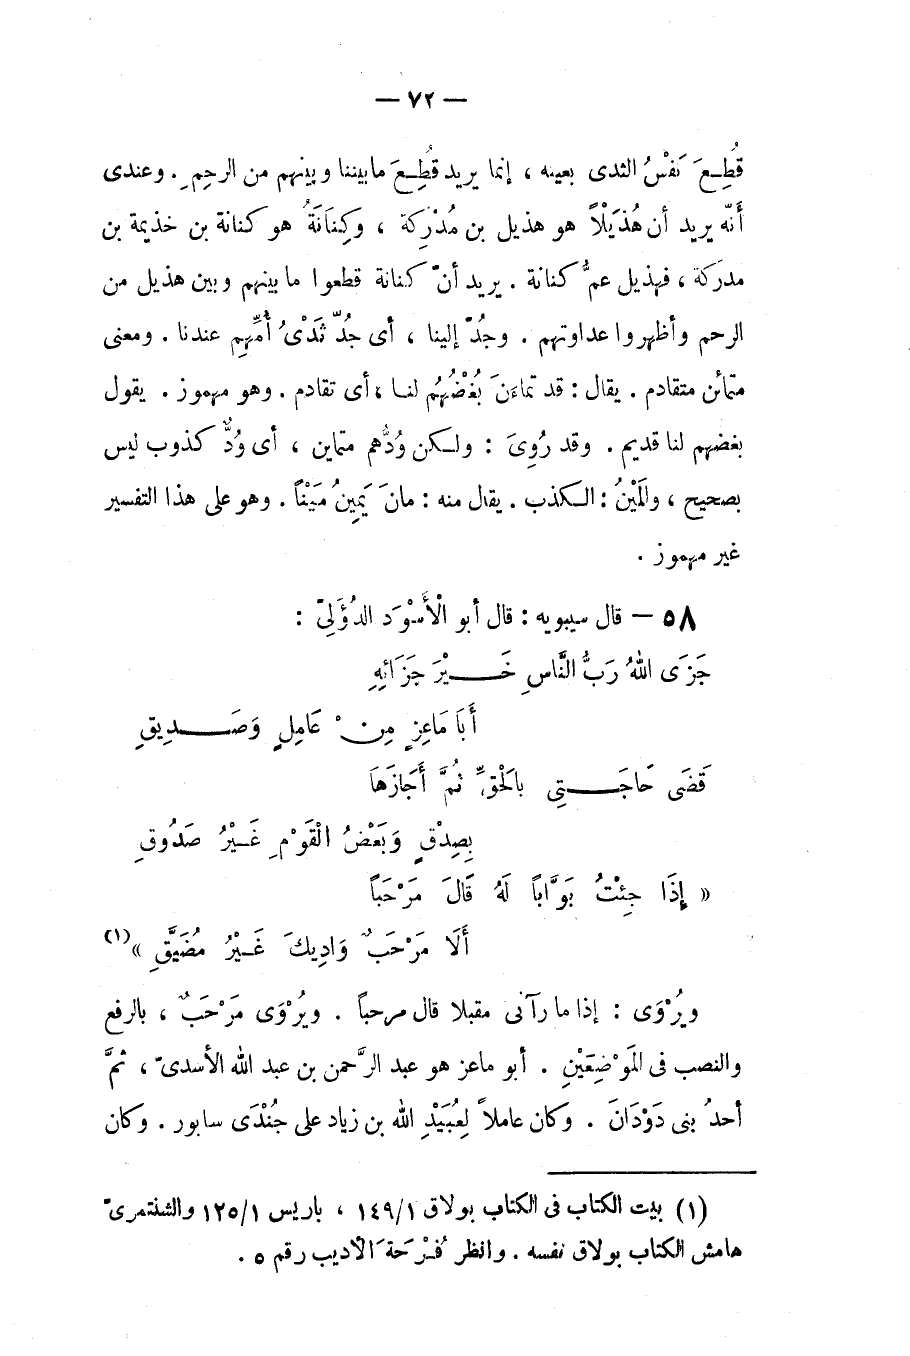 — ٧٢ —
قُطِعَ نَفْسُ الثدى بعينه ، إنما يريد قُطِعَ مابيننا وبينهم من الرحِمِ . وعندى
أَنّه يريد أن هُذَيْلاً هو هذيل بن مُدْرِكة ، وكِنَانَةُ هو كنانة بن خذيمة بن
مدرَكة ، فهذيل عمُّ كنانة . يريد أنّ كنانة قطعوا ما بينهم وبين هذيل من
الرحم وأظهروا عداوتهم . وجُدّ إلينا ، أى جُدّ ثَدْىُ أُمِّهِم عندنا . ومعنى
متمائن متقادم . يقال : قد تماءَنَ بُغْضُهُم لنا ، أى تقادم . وهو مهموز . يقول
بغضهم لنا قديم . وقد رُوِىَ : ولكن وُدُّهم متماين ، أى وُدٌّ كذوب ليس
بصحيح ، والمَيْنُ : الكذب . يقال منه : مانَ يَمِينُ مَيْناً . وهو على هذا التفسير
غير مهموز .
٥٨ — قال سيبويه : قال أبو الْأَسْوَد الدُؤَلِىّ :
جَزَى اللهُ رَبُّ النَّاسِ خَيْرَ جَزَائِهِ
أَبَا مَاعِزٍ مِنْ عَامِلٍ وَصَدِيقِ
قَضَى حَاجَتِى بِالْحَقِّ ثُمَّ أَجَازَهَا
بِصِدْقٍ وَبَعْضُ الْقَوْمِ غَيْرُ صَدُوقِ
« إِذَا جِئْتُ بَوَّاباً لَهُ قَالَ مَرْحَباً
أَلَا مَرْحَبٌ وَادِيكَ غَيْرُ مُضَيَّقِ »(١)
ويُرْوَى : إذا ما رآنى مقبلا قال مرحباً . ويُرْوَى مَرْحَبٌ ، بالرفع
والنصب فى المَوْضِعَيْنِ . أبو ماعز هو عبد الرَّحمن بن عبد الله الأسدىّ ، ثمَّ
أحدُ بنى دَوْدَانَ . وكان عاملاً لِعُبَيْدِ الله بن زياد على جُنْدَى سابور . وكان
(١) بيت الكتاب فى الكتاب بولاق ١٤٩/١ ، باريس ١٢٥/١ والشنتمرىّ
هامش الكتاب بولاق نفسه . وانظر فُرْحَة الأديب رقم ٥ .